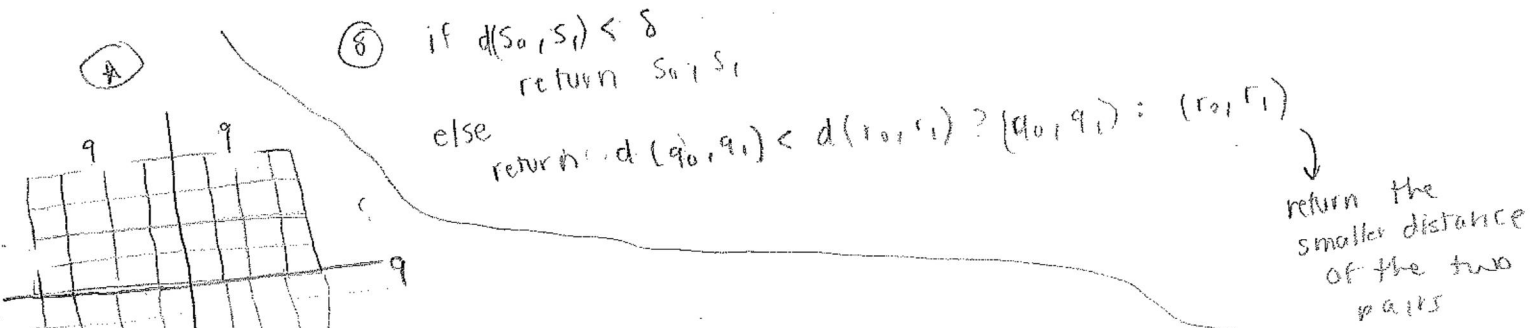 A
9 9
9
⑧ if d(s₀, s₁) < δ
return s₀, s₁
else
return d(q₀, q₁) < d(r₀, r₁) ? (q₀, q₁) : (r₀, r₁)
return the
smaller distance
of the two
pairs